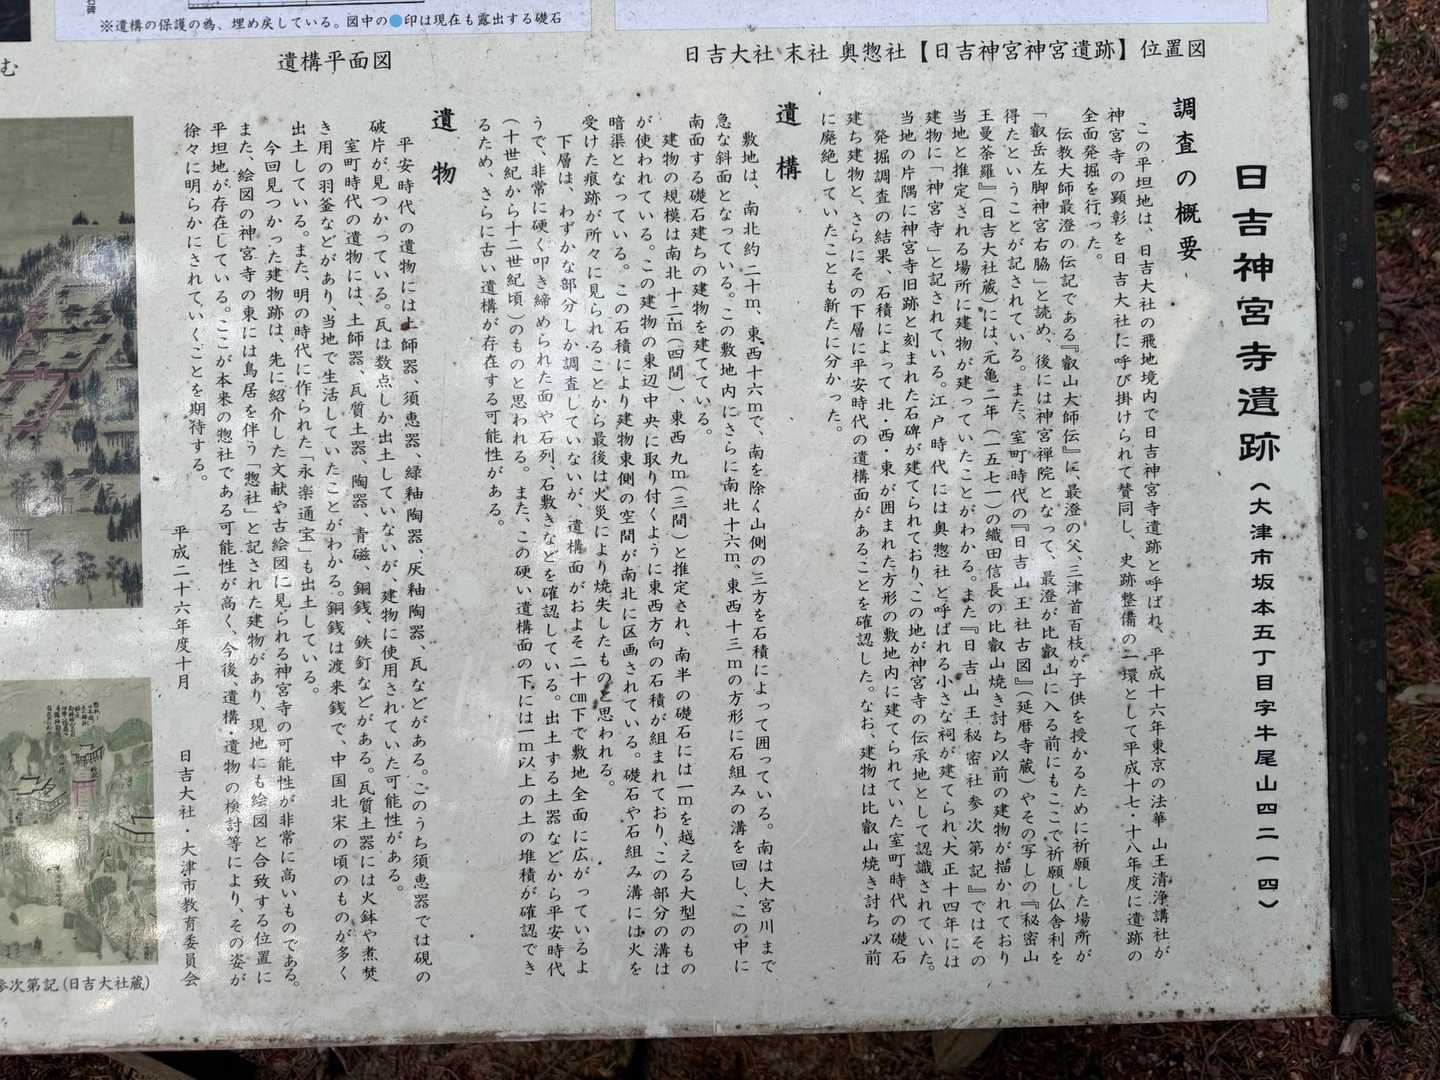 ※遺構の保護の為、埋め戻している。図中の●印は現在も露出する礎石
遺構平面図
日吉大社 末社 奥惣社【日吉神宮神宮遺跡】位置図
む
日吉神宮寺遺跡(大津市坂本五丁目字牛尾山四二一四)
調査の概要
この平坦地は、日吉大社の飛地境内で日吉神宮寺遺跡と呼ばれ、平成十六年東京の法華 山王清浄講社が
神宮寺の顕彰を日吉大社に呼び掛けられて賛同し、史跡整備の一環として平成十七・十八年度に遺跡の
全面発掘を行った。
伝教大師最澄の伝記である『叡山大師伝』に、最澄の父、三津首百枝が子供を授かるために祈願した場所が
「叡岳左脚神宮右脇」と読め、後には神宮禅院となって、最澄が比叡山に入る前にもここで祈願し仏舎利を
得たということが記されている。また、室町時代の『日吉山王社古図』(延暦寺蔵)やその写しの『秘密山
王曼荼羅』(日吉大社蔵)には、元亀二年(一五七一)の織田信長の比叡山焼き討ち以前の建物が描かれており
当地と推定される場所に建物が建っていたことがわかる。また『日吉山王秘密社参次第記』ではその
建物に「神宮寺」と記されている。江戸時代には奥惣社と呼ばれる小さな祠が建てられ、大正十四年には
当地の片隅に神宮寺旧跡と刻まれた石碑が建てられており、この地が神宮寺の伝承地として認識されていた。
発掘調査の結果、石積によって北・西・東が囲まれた方形の敷地内に建てられていた室町時代の礎石
建ち建物と、さらにその下層に平安時代の遺構面があることを確認した。なお、建物は比叡山焼き討ち以前
に廃絶していたことも新たに分かった。
遺構
敷地は、南北約二十m、東西十六mで、南を除く山側の三方を石積によって囲っている。南は大宮川まで
急な斜面となっている。この敷地内にさらに南北十六m、東西十三mの方形に石組みの溝を回し、この中に
南面する礎石建ちの建物を建てている。
建物の規模は南北十二m(四間)、東西九m(三間)と推定され、南半の礎石には一mを越える大型のもの
が使われている。この建物の東辺中央に取り付くように東西方向の石積が組まれており、この部分の溝は
暗渠となっている。この石積により建物東側の空間が南北に区画されている。礎石や石組み溝には火を
受けた痕跡が所々に見られることから最後は火災により焼失したものと思われる。
下層は、わずかな部分しか調査していないが、遺構面がおよそ二十cm下で敷地全面に広がっているよ
うで、非常に硬く叩き締められた面や石列、石敷きなどを確認している。出土する土器などから平安時代
(十世紀から十二世紀頃)のものと思われる。また、この硬い遺構面の下には一m以上の土の堆積が確認でき
るため、さらに古い遺構が存在する可能性がある。
遺物
平安時代の遺物には土師器、須恵器、緑釉陶器、灰釉陶器、瓦などがある。このうち須恵器では硯の
破片が見つかっている。瓦は数点しか出土していないが、建物に使用されていた可能性がある。
室町時代の遺物には、土師器、瓦質土器、陶器、青磁、銅銭、鉄釘などがある。瓦質土器には火鉢や煮焚
き用の羽釜などがあり当地で生活していたことがわかる。銅銭は渡来銭で、中国北宋の頃のものが多く
出土している。また、明の時代に作られた「永楽通宝」も出土している。
今回見つかった建物跡は、先に紹介した文献や古絵図に見られる神宮寺の可能性が非常に高いものである。
また、絵図の神宮寺の東には鳥居を伴う「惣社」と記された建物があり、現地にも絵図と合致する位置に
平坦地が存在している。ここが本来の惣社である可能性が高く、今後、遺構・遺物の検討等により、その姿が
徐々に明らかにされていくことを期待する。
平成二十六年度十月 日吉大社・大津市教育委員会
参次第記(日吉大社蔵)